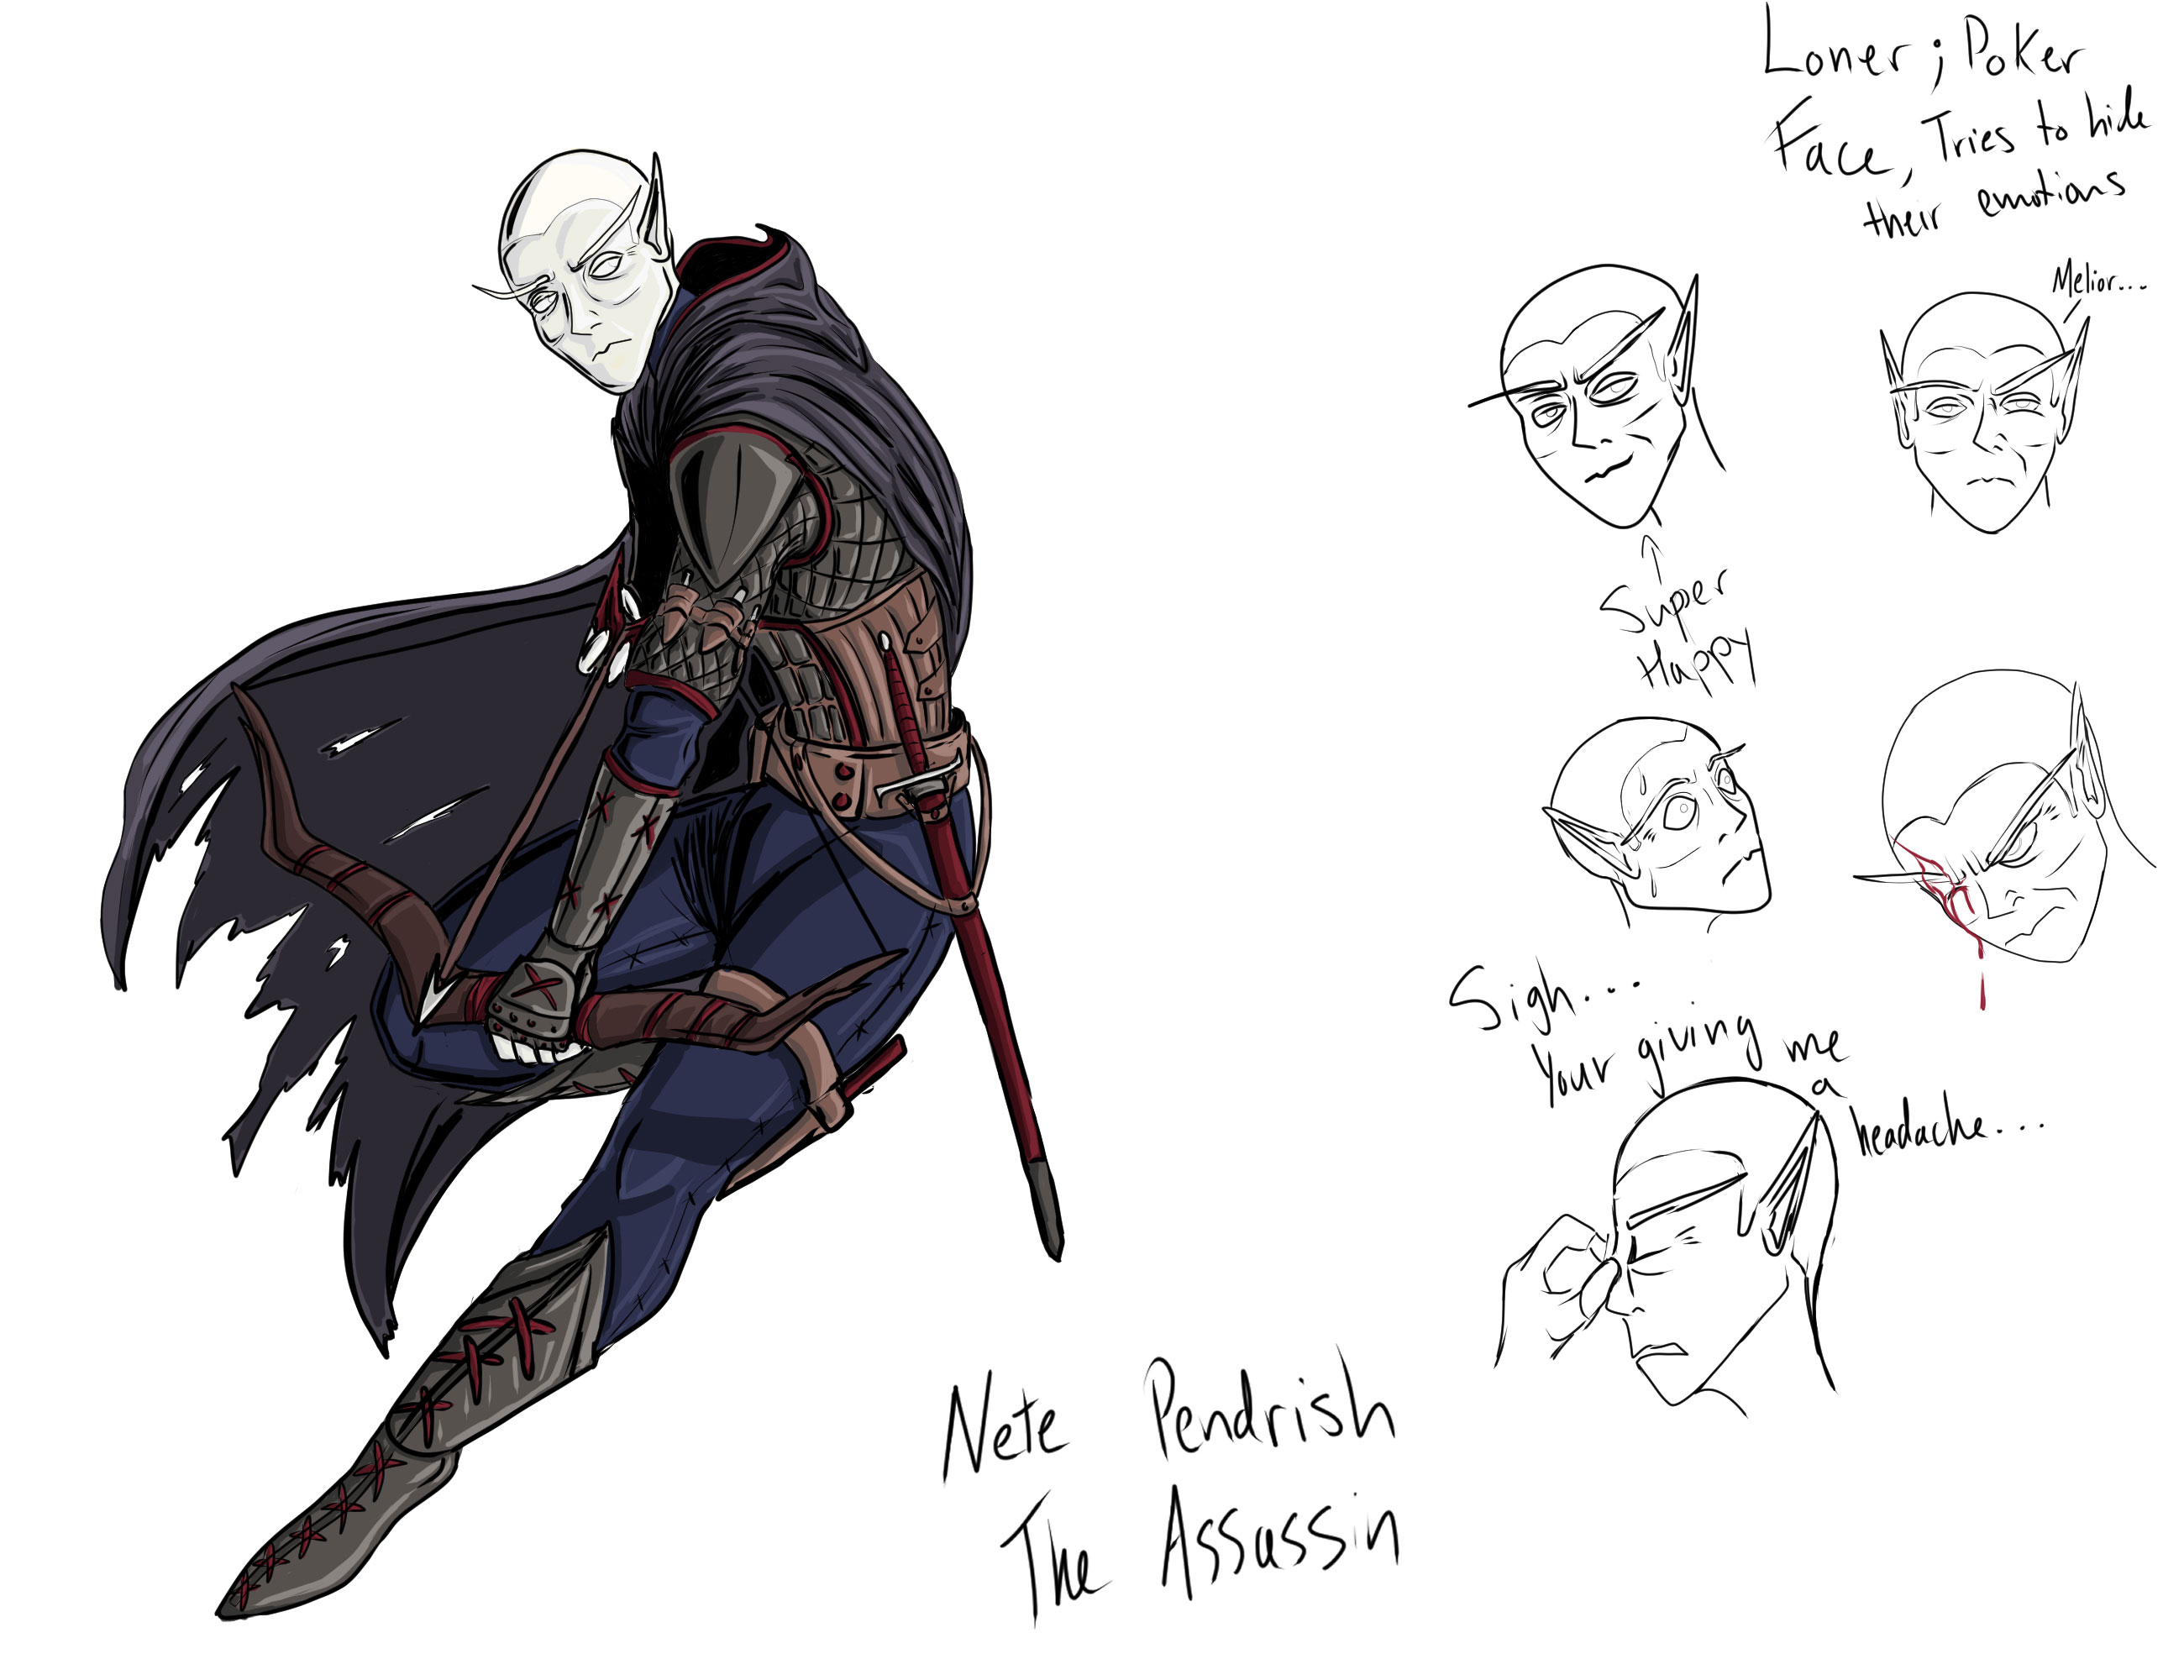 Loner; Poker
Face, Tries to hide
their emotions
Melior...
Super
Happy
Sigh....
Your giving me
a
headache....
Nete Pendrish
The Assassin